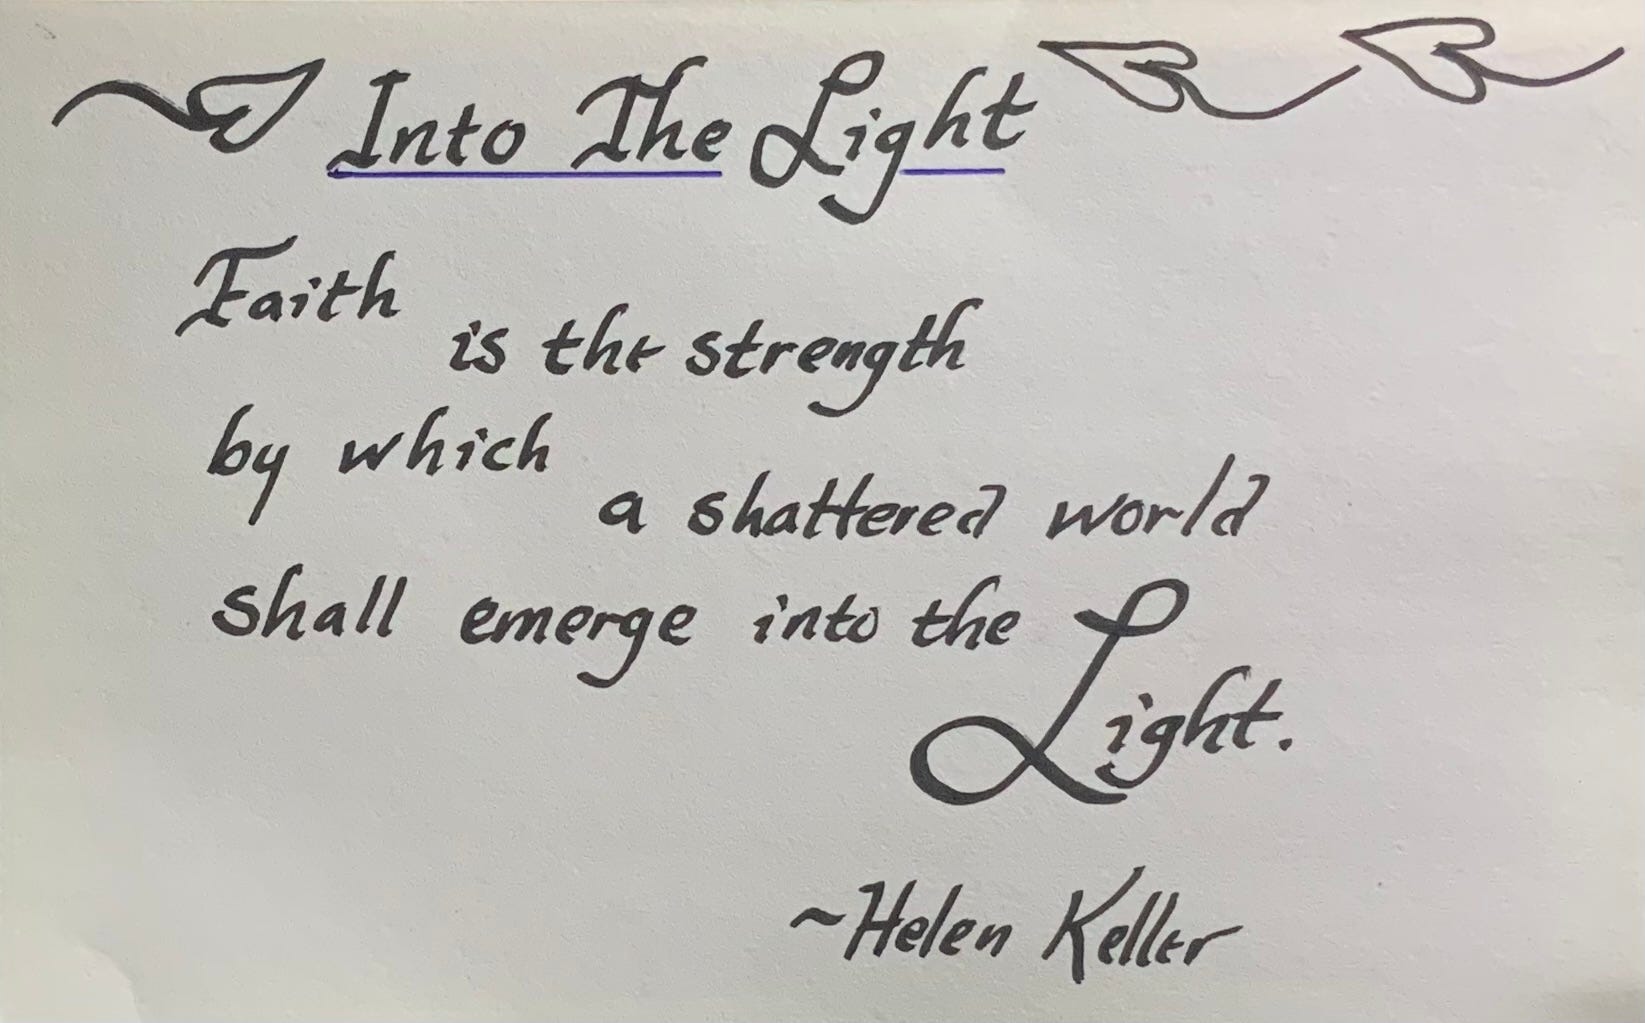 Into The Light
Faith
is the strength
by which
a shattered world
shall emerge into the
Light.
~Helen Keller